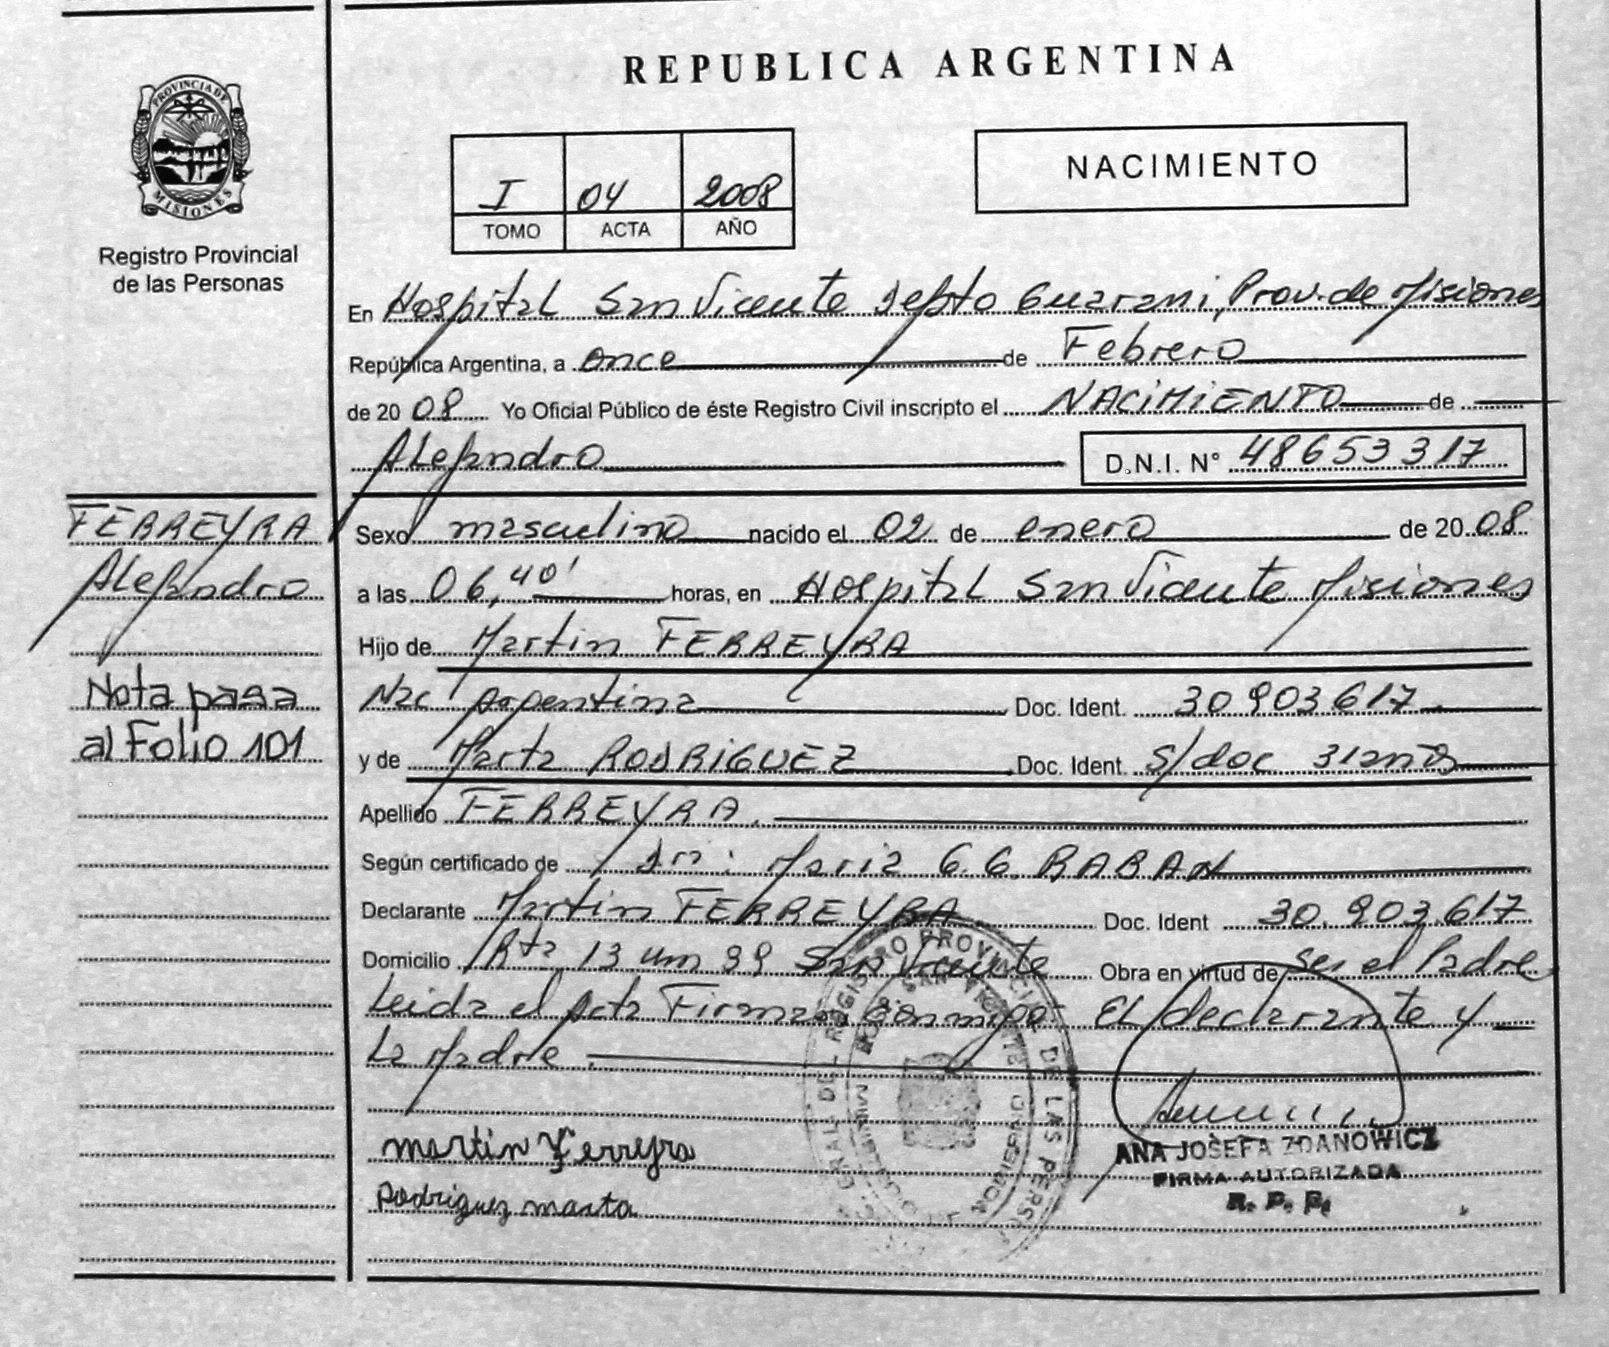 REPUBLICA ARGENTINA
PROVINCIA DE
MISIONES
Registro Provincial
de las Personas
I 04 2008
TOMO ACTA AÑO
NACIMIENTO
En Hospital San Vicente Depto Guarani, Prov. de Misiones
República Argentina, a once de Febrero
de 20 08 Yo Oficial Público de éste Registro Civil inscripto el NACIMIENTO de
Alejandro D.N.I. N° 48653317
FERREYRA
Alejandro
Nota pasa
al Folio 101
Sexo masculino nacido el 02 de enero de 20 08
a las 06,40' horas, en Hospital San Vicente Misiones
Hijo de Martin FERREYRA
Nac Argentina Doc. Ident. 30903617
y de Marta RODRIGUEZ Doc. Ident. s/doc 31años
Apellido FERREYRA.
Según certificado de Dra: Maria G.G. RABAN
Declarante Martin FERREYRA Doc. Ident 30.903.617
Domicilio Rta 13 km 99 San Vicente Obra en virtud de ser el Padre
Leida el Acta Firman conmigo: El declarante y
La Madre.
martin Ferreyra
Rodriguez marta
ANA JOSEFA ZDANOWICZ
FIRMA AUTORIZADA
R. P. P.